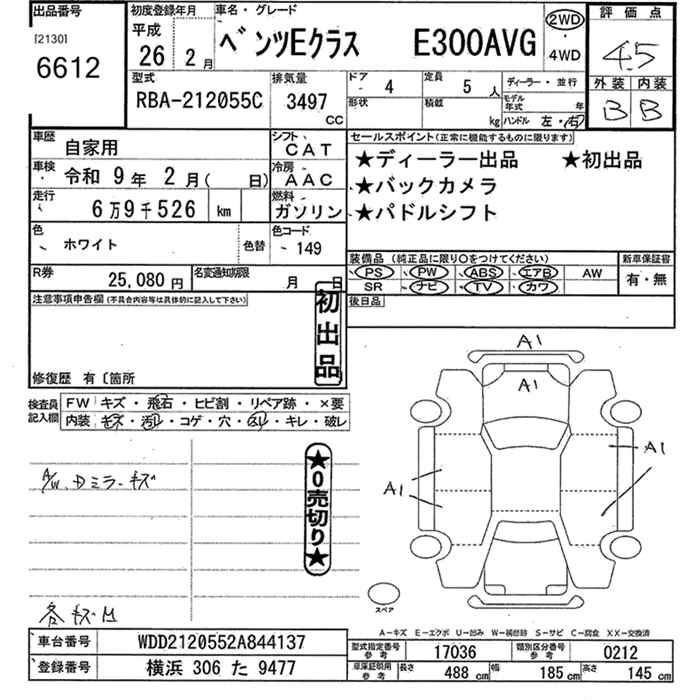 出品番号
[2130]
6612
初度登録年月
平成
26年 2月
車名・グレード
ベンツEクラス E300AVG
2WD
・
4WD
評価点
4.5
外装 内装
B B
型式
RBA-212055C
排気量
3497
CC
ドア
4
形状
定員
5 人
積載
kg
ディーラー・並行
モデル年式 年
ハンドル 左・右
車歴
自家用
シフト
CAT
車検
令和 9年 2月( 日)
冷房
AAC
走行
6万9千526 km
燃料
ガソリン
色
ホワイト
色替
色コード
149
R券
25,080円
名変通知期限
月 日
セールスポイント(正常に機能するものに限ります)
★ディーラー出品 ★初出品
★バックカメラ
★パドルシフト
装備品(純正品に限り○をつけてください)
PS PW ABS エアB AW
SR ナビ TV カワ
新車保証書
有・無
後日品
注意事項申告欄(不具合内容等は具体的に記入して下さい)
初出品
修復歴 有〔箇所
検査員記入欄
FW キズ・飛石・ヒビ割・リペア跡・×要
内装 キズ・汚れ・コゲ・穴・スレ・キレ・破レ
A/W、Dミラーキズ
★0売切り★
各キズ凹
A1
A1
A1
A1
スペア
A−キズ E−エクボ U−凹み W−補修跡 S−サビ C−腐食 XX−交換済
車台番号 WDD2120552A844137
登録番号 横浜 306 た 9477
型式指定番号参考 17036
類別区分番号参考 0212
車庫証明用参考
長さ 488 cm
幅 185 cm
高さ 145 cm